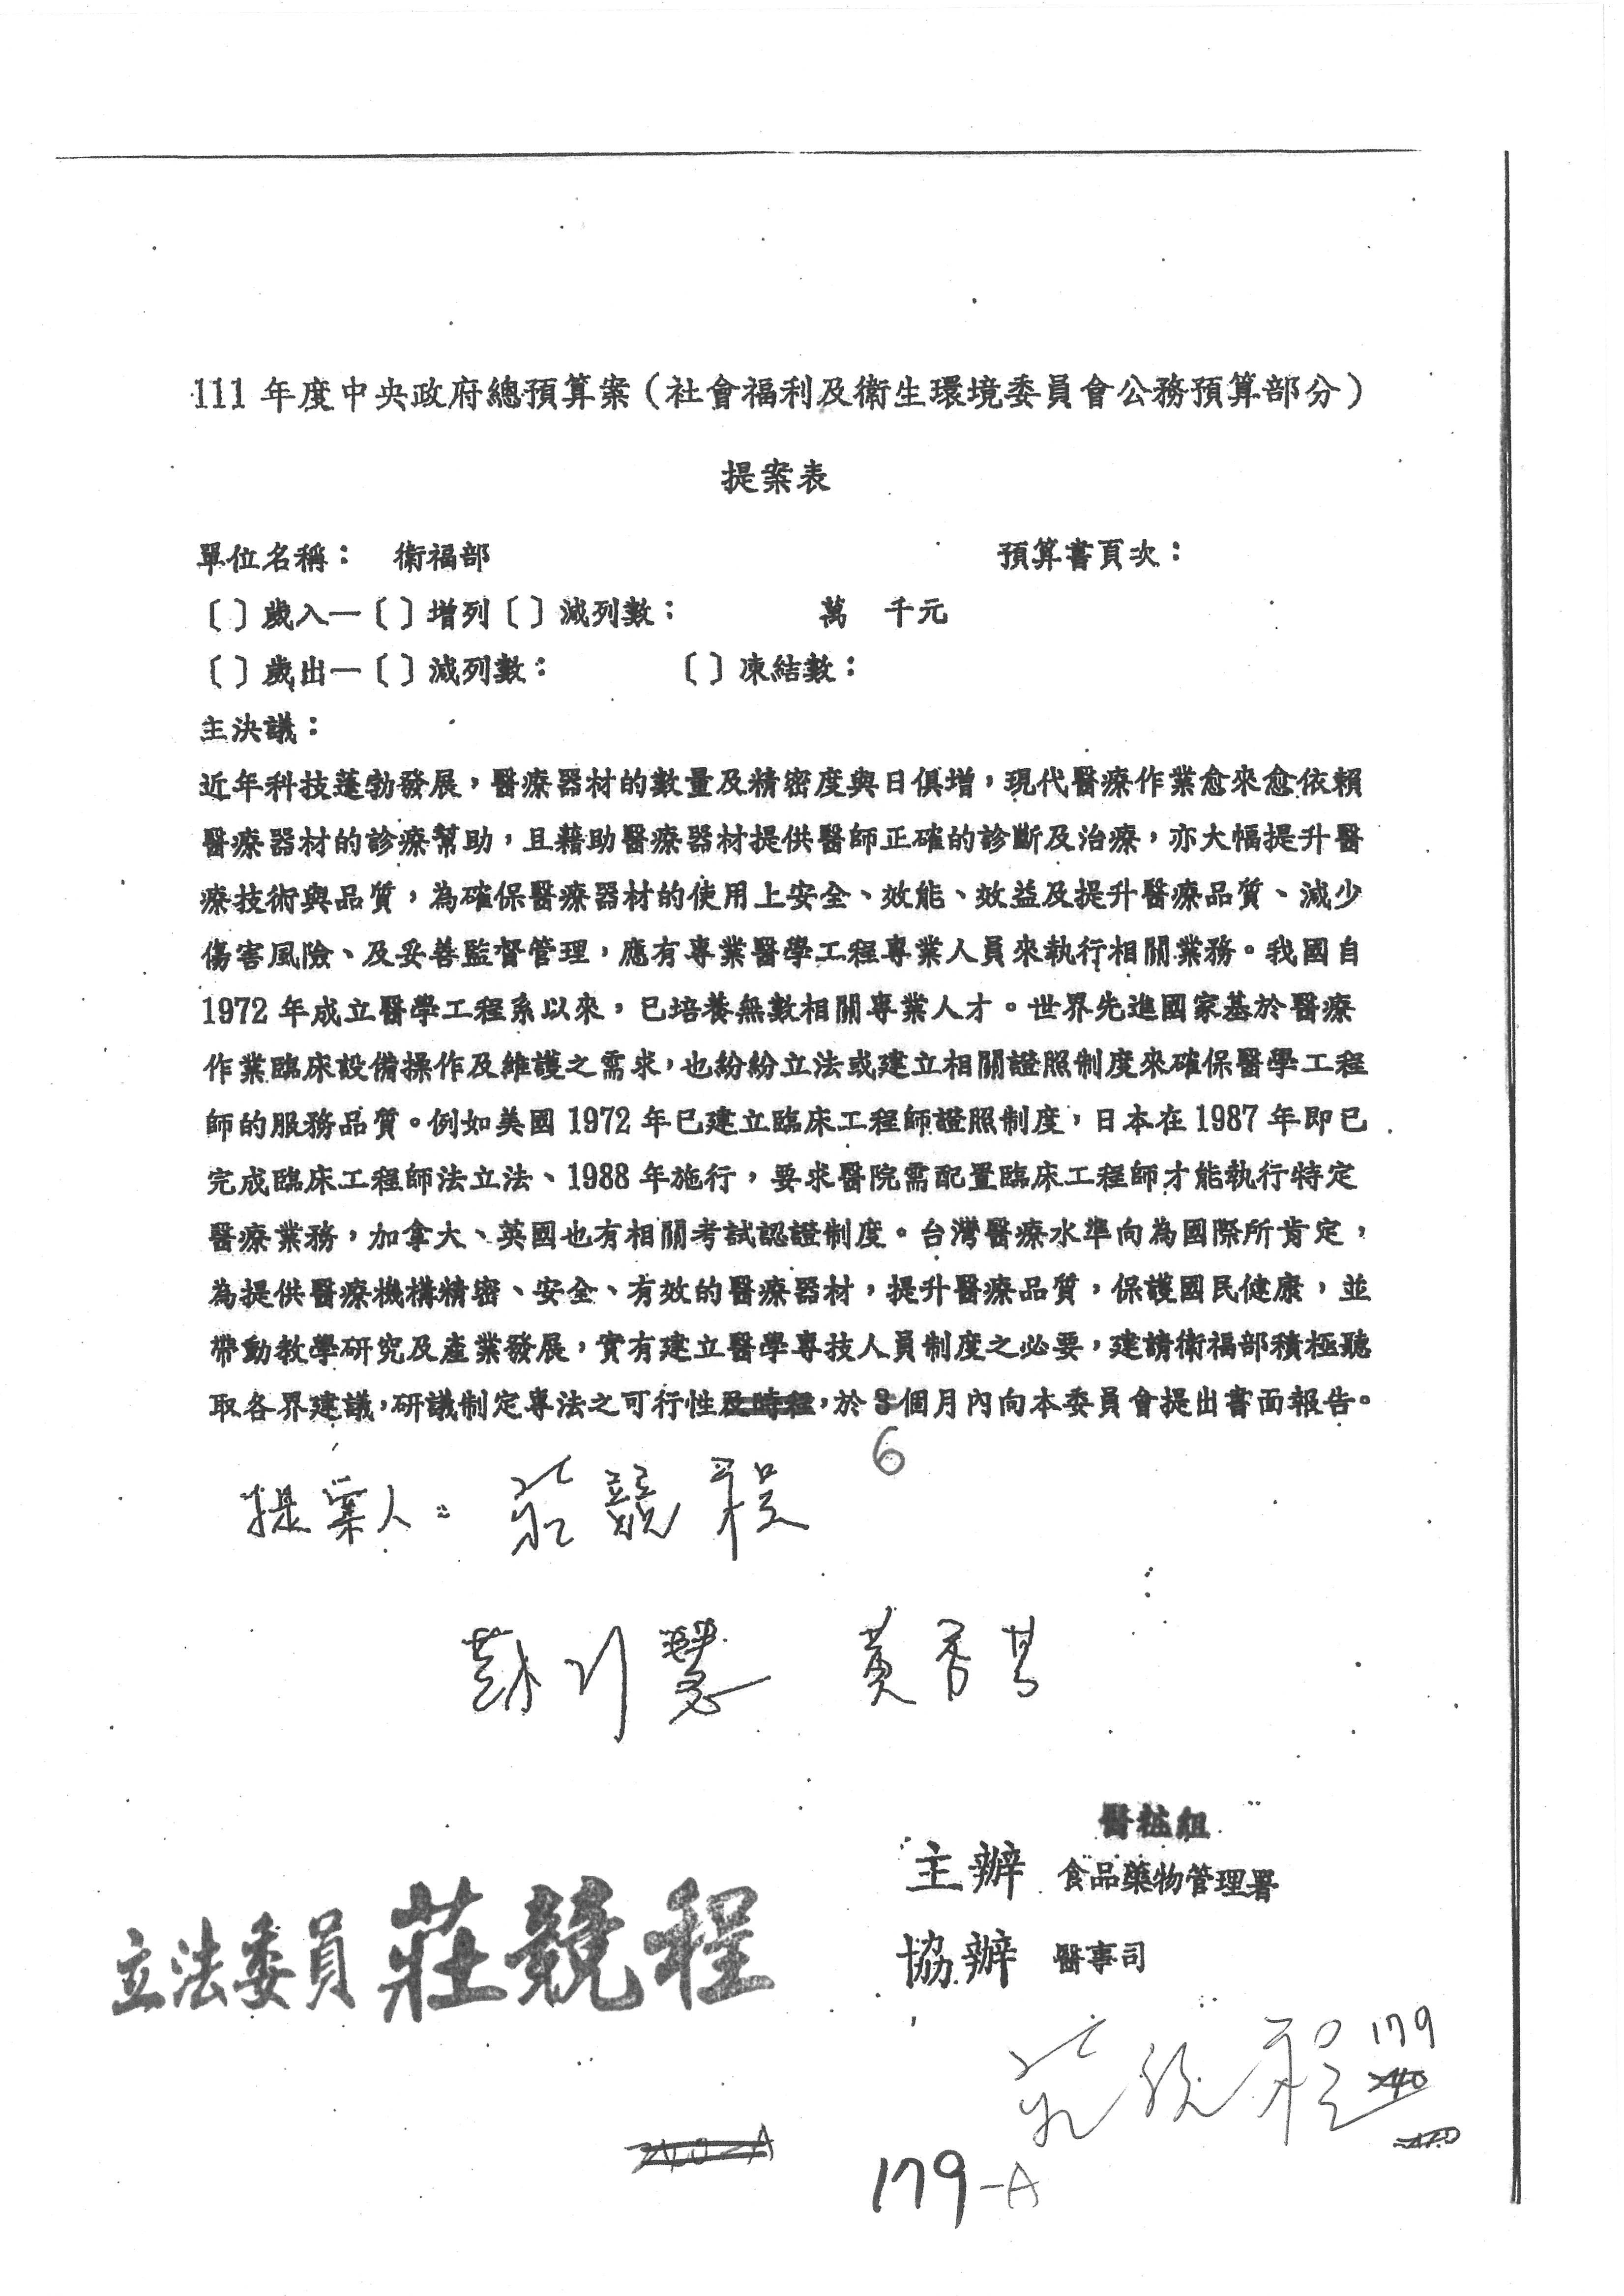 111年度中央政府總預算案(社會福利及衛生環境委員會公務預算部分)
提案表
單位名稱： 衛福部 預算書頁次：
〔〕歲入—〔〕增列〔〕減列數： 萬 千元
〔〕歲出—〔〕減列數： 〔〕凍結數：
主決議：
近年科技蓬勃發展，醫療器材的數量及精密度與日俱增，現代醫療作業愈來愈依賴
醫療器材的診療幫助，且藉助醫療器材提供醫師正確的診斷及治療，亦大幅提升醫
療技術與品質，為確保醫療器材的使用上安全、效能、效益及提升醫療品質、減少
傷害風險、及妥善監督管理，應有專業醫學工程專業人員來執行相關業務。我國自
1972年成立醫學工程系以來，已培養無數相關專業人才。世界先進國家基於醫療
作業臨床設備操作及維護之需求，也紛紛立法或建立相關證照制度來確保醫學工程
師的服務品質。例如美國1972年已建立臨床工程師證照制度，日本在1987年即已
完成臨床工程師法立法、1988年施行，要求醫院需配置臨床工程師才能執行特定
醫療業務，加拿大、英國也有相關考試認證制度。台灣醫療水準向為國際所肯定，
為提供醫療機構精密、安全、有效的醫療器材，提升醫療品質，保護國民健康，並
帶動教學研究及產業發展，實有建立醫學專技人員制度之必要，建請衛福部積極聽
取各界建議，研議制定專法之可行性及時程，於3個月內向本委員會提出書面報告。
6
提案人： 莊競程
黃秀芳
醫粧組
主辦 食品藥物管理署
協辦 醫事司
立法委員 莊競程
莊競程 179
179-A